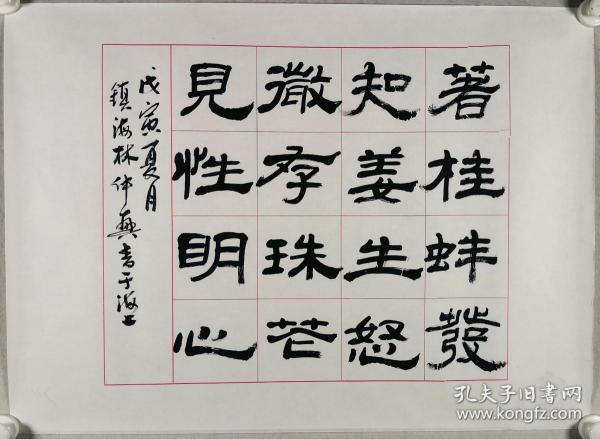 著桂蚌發
知姜生怒
微存珠芒
見性明心
戊寅夏月
鎮海林仲興書于海上
孔夫子旧书网
www.kongfz.com